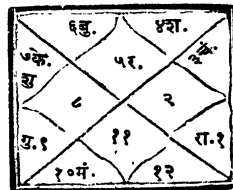 ६बु. ४श.
७के. ५र. ३चं.
शु
८ २
गु.९ ११ रा.१
१०मं. १२